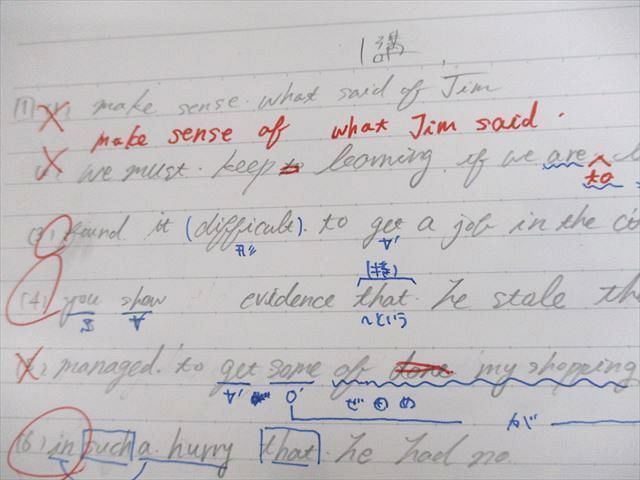 1講
(1) make sense. what said of Jim
make sense of what Jim said.
we must. keep to learning if we are
to
(3) found. it (difficult). to get a job in the co
形 V'
(4) you show evidence that. he stole th
S V ～という
managed. to get some of done my shopping
V' O'
が
(6) in such a. hurry that. he had no.